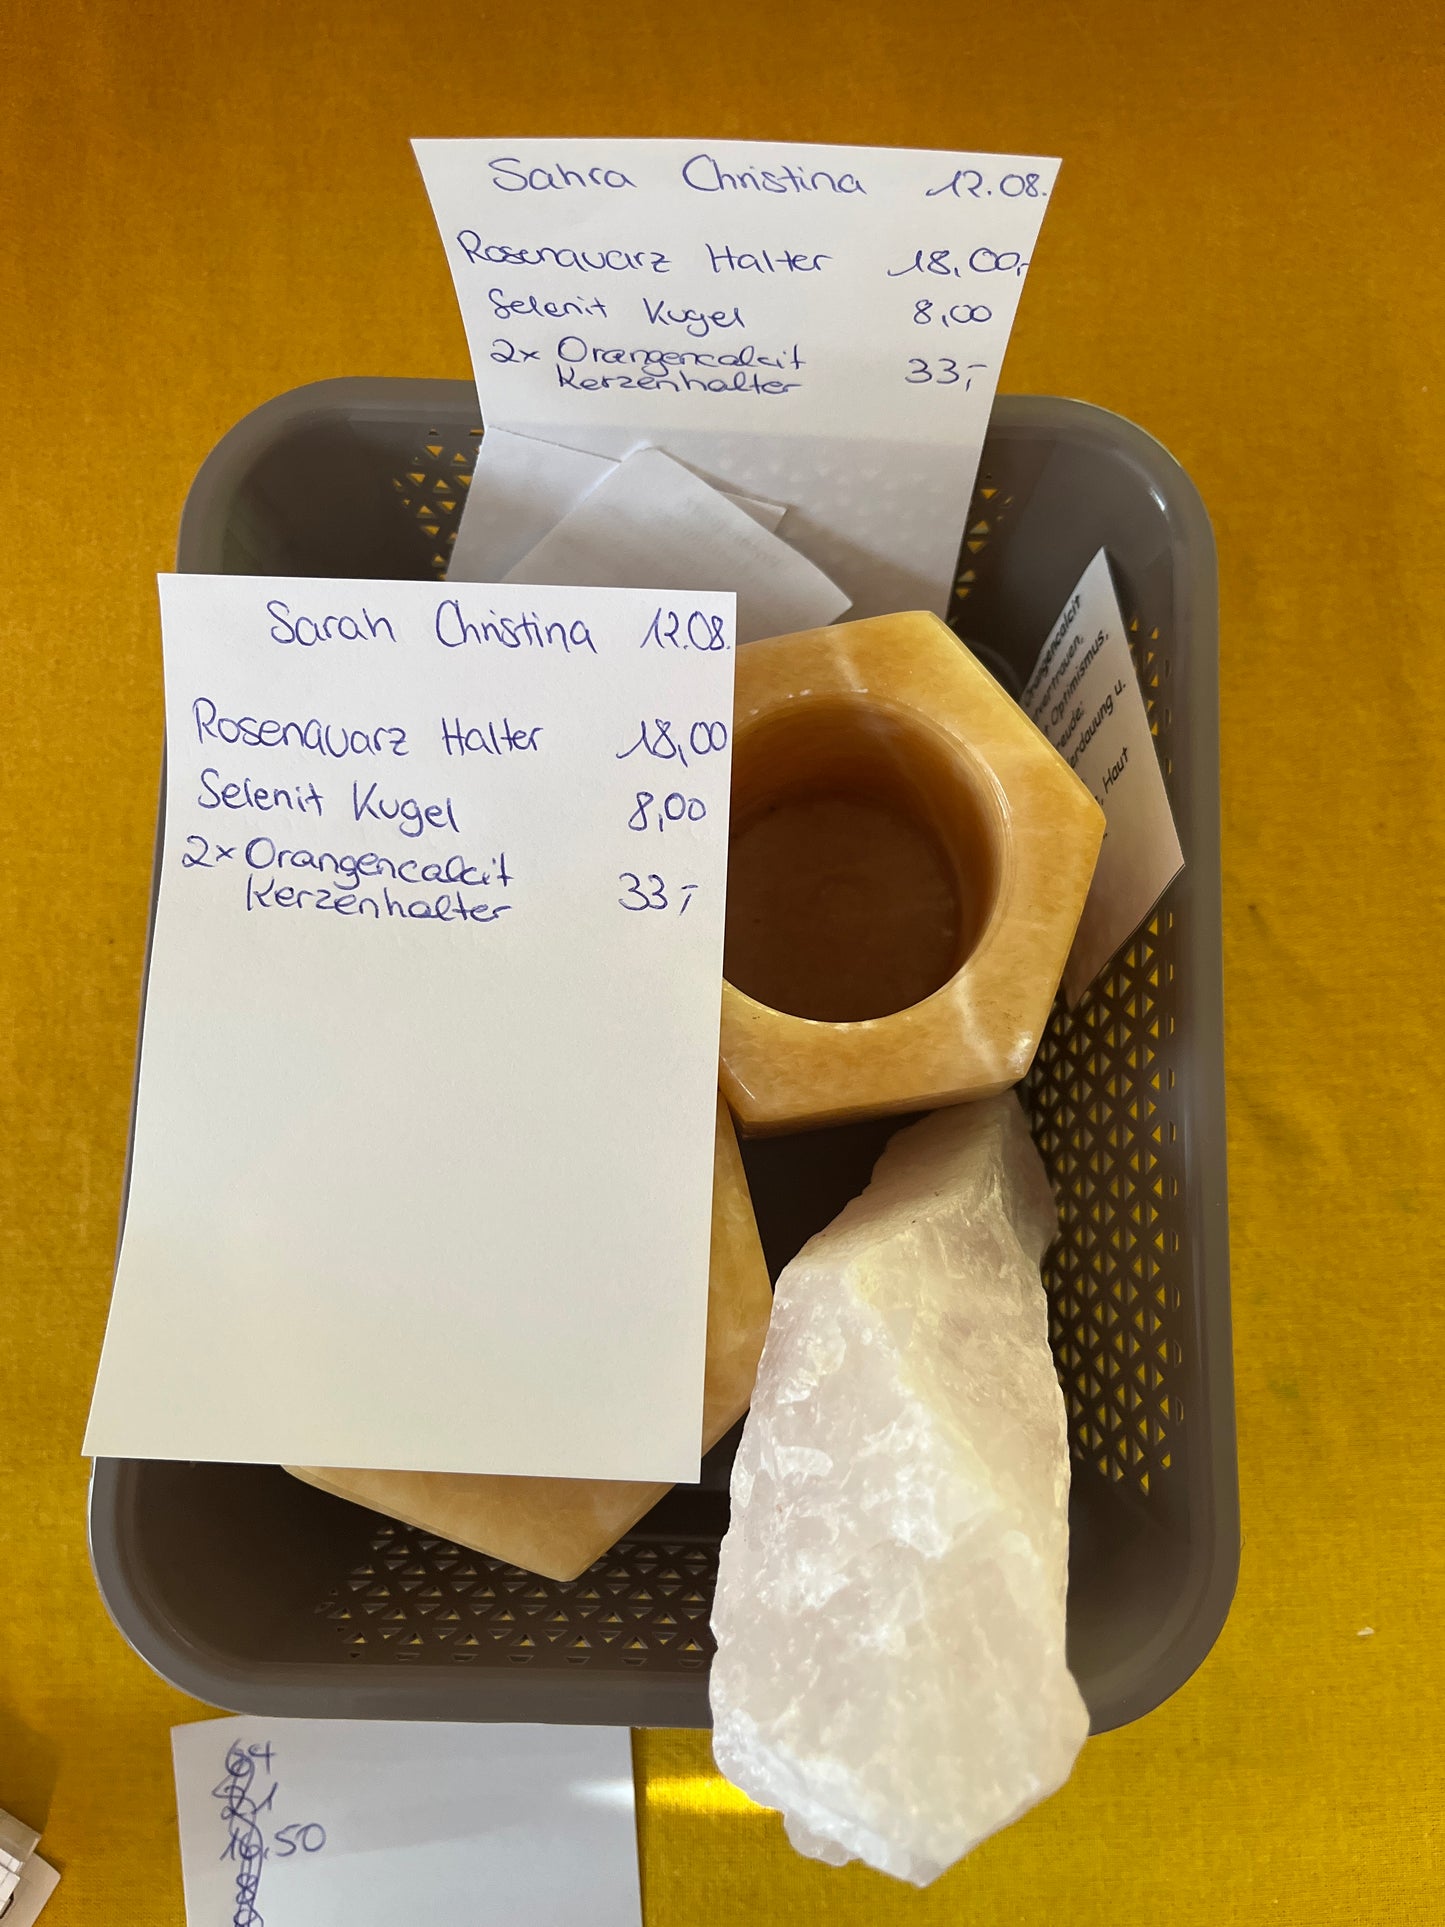 Sahra Christina 12.08.
Rosenquarz Halter 18,00,-
Selenit Kugel 8,00
2x Orangencalcit
Kerzenhalter 33,-
Sarah Christina 12.08.
Rosenquarz Halter 18,00
Selenit Kugel 8,00
2x Orangencalcit
Kerzenhalter 33,-
Orangencalcit
vertrauen,
Optimismus,
eude;
erdauung u.
, Haut
64
21
16,50